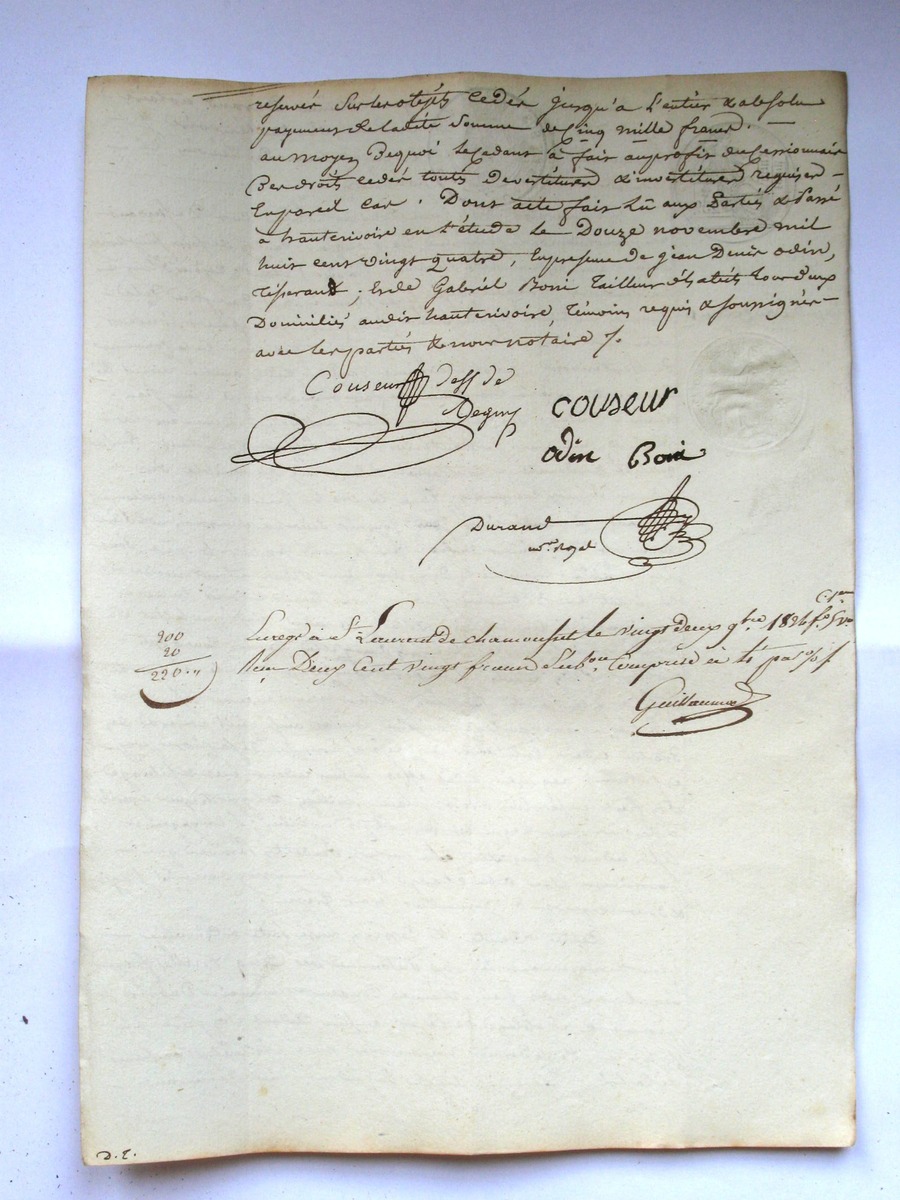 reservés sur les objets cedés jusqu'à l'entier & absolu
payement de ladite somme de cinq mille francs. —
au moyen de quoi le cedant à fait au profit du cessionnaire
des droits cedés toutes devestitures & investitures requises —
en pareil cas. Dont acte fait lû aux parties & Passé
à hauterivoire en l'étude le Douze novembre mil
huit cent vingt quatre, en presence de jean Denis odin,
Tisserand, et de Gabriel Boni Tailleur d'habits tous deux
Domiciliés audit hauterivoire Témoins requis & soussignés —
avec les parties & nous notaire /.
Couseur dess de
couseur
odin Boni
Durand
no.re Royal
200
20
220 "
Enregé à St Laurent de chamousset le vingt deux 9bre 1824 fo 50 vo
Reçu Deux Cent vingt francs Subon Comprise à 4 p o/o /.
Guillaume
D. E.